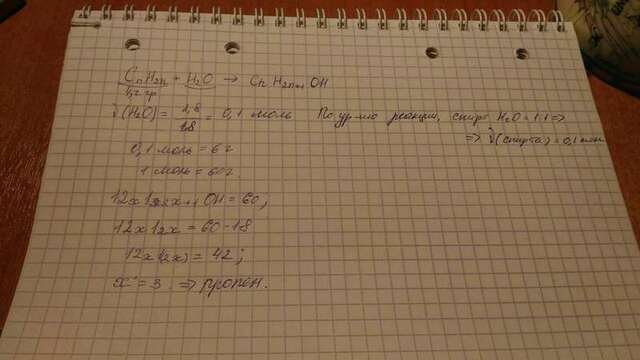 CnH2n + H2O → CnH2n+1OH
ν(H2O) = 1,8/18 = 0,1 моль По ур-ию реакции, спирт H2O = 1:1 =>
=> ν(спирта) = 0,1 моль
0,1 моль = 6 г
1 моль = 60 г.
OH = 60;
= 60-18
= 42;
x = 3. => пропен.